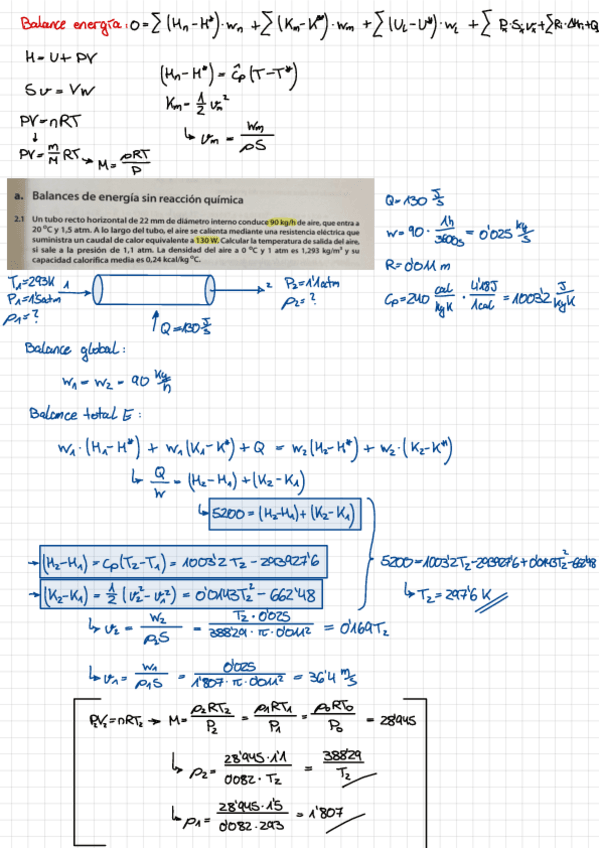 Balance energía: 0 = ∑(Hn-H*)·wn + ∑(Km-K*)·wm + ∑(Ui-U*)·wi + ∑Px·Sx·vx + ∑Ri·ΔHn + Q
H = U + PV
(Hn-H*) = Ĉp(T-T*)
Sv = Vw
Km = 1/2 vm²
PV = nRT
↳ vm = wm/ρS
↓
PV = m/M RT → M = ρRT/P
a. Balances de energía sin reacción química
2.1 Un tubo recto horizontal de 22 mm de diámetro interno conduce 90 kg/h de aire, que entra a
20 ºC y 1,5 atm. A lo largo del tubo, el aire se calienta mediante una resistencia eléctrica que
suministra un caudal de calor equivalente a 130 W. Calcular la temperatura de salida del aire,
si sale a la presión de 1,1 atm. La densidad del aire a 0 ºC y 1 atm es 1,293 kg/m³ y su
capacidad calorífica media es 0,24 kcal/kg ºC.
Q = 130 J/s
w = 90 · 1h/3600s = 0'025 kg/s
R = 0'011 m
Cp = 240 cal/kgK · 4'18J/1cal = 1003'2 J/kgK
T1 = 293K
P1 = 1'5atm
ρ1 = ?
1
2
P2 = 1'1atm
ρ2 = ?
↑ Q = 130 J/s
Balance global:
w1 = w2 = 90 kg/h
Balance total E:
w1·(H1-H*) + w1(K1-K*) + Q = w2(H2-H*) + w2·(K2-K*)
↳ Q/w = (H2-H1) + (K2-K1)
↳ 5200 = (H2-H1) + (K2-K1)
→ (H2-H1) = Cp(T2-T1) = 1003'2T2 - 293927'6
→ (K2-K1) = 1/2 (v2²-v1²) = 0'0143T2² - 662'48
5200 = 1003'2T2 - 293927'6 + 0'0143T2² - 662'48
↳ T2 = 297'6 K
↳ v2 = w2/ρ2S = T2·0'025/388'29·π·0'011² = 0'169T2
↳ v1 = w1/ρ1S = 0'025/1'807·π·0'011² = 36'4 m/s
P2V2 = nRT2 → M = ρ2RT2/P2 = ρ1RT1/P1 = ρ0RT0/P0 = 28'945
↳ ρ2 = 28'945·1'1/0'082·T2 = 388'29/T2
↳ ρ1 = 28'945·1'5/0'082·293 = 1'807